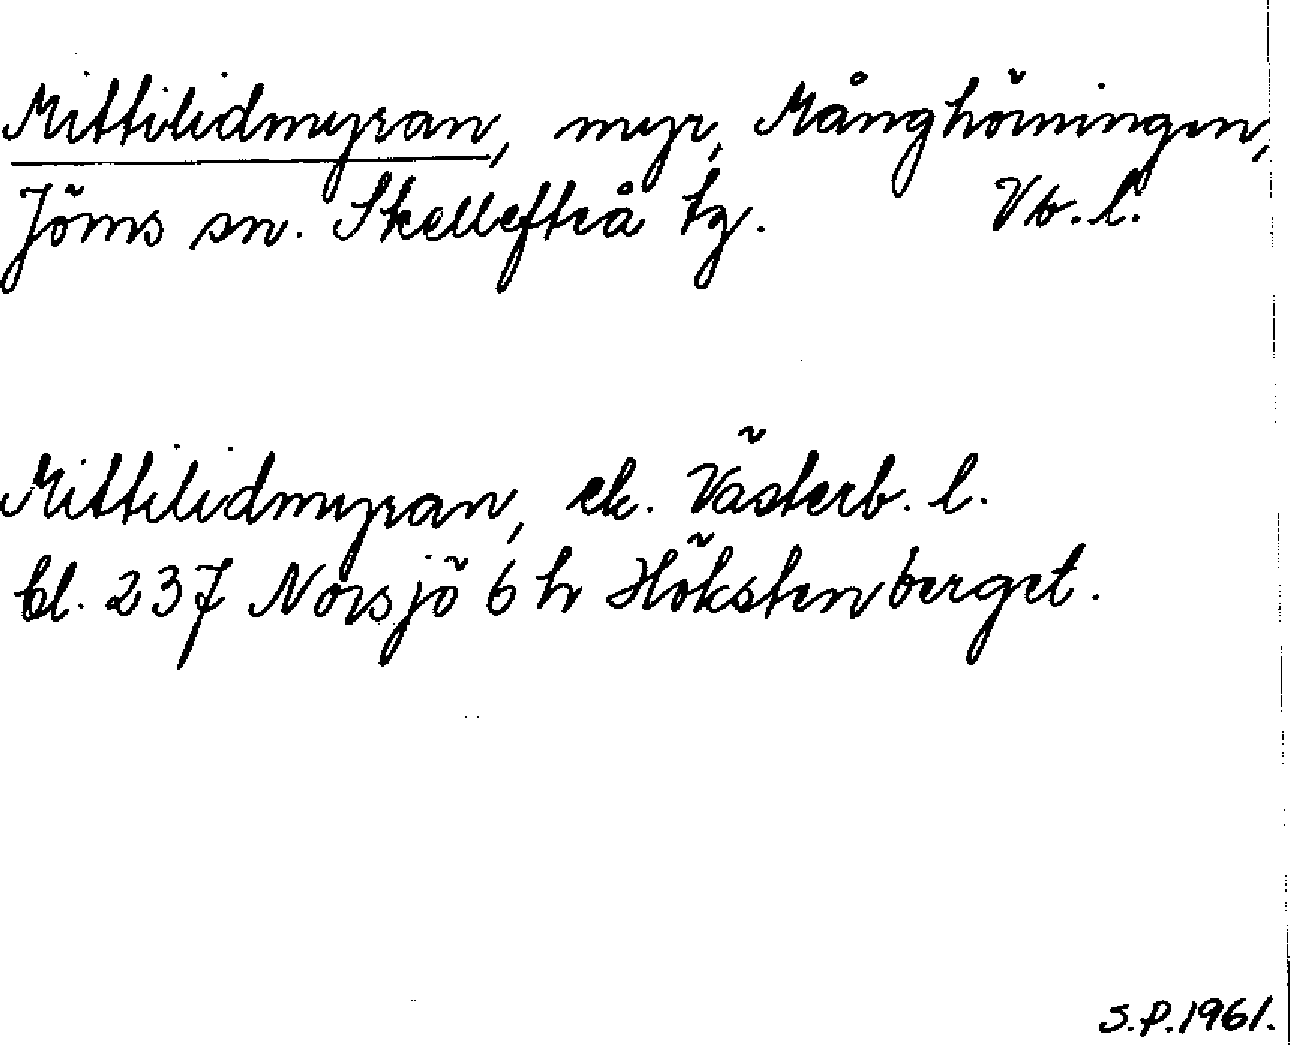 Mittilidmyran, myr, Månghörningen,
Jörns sn. Skellefteå tg. Vb. l.
Mittilidmyran, ek. Västerb. l.
bl. 237 Norsjö 6 h Hökstenberget.
S.P.1961.